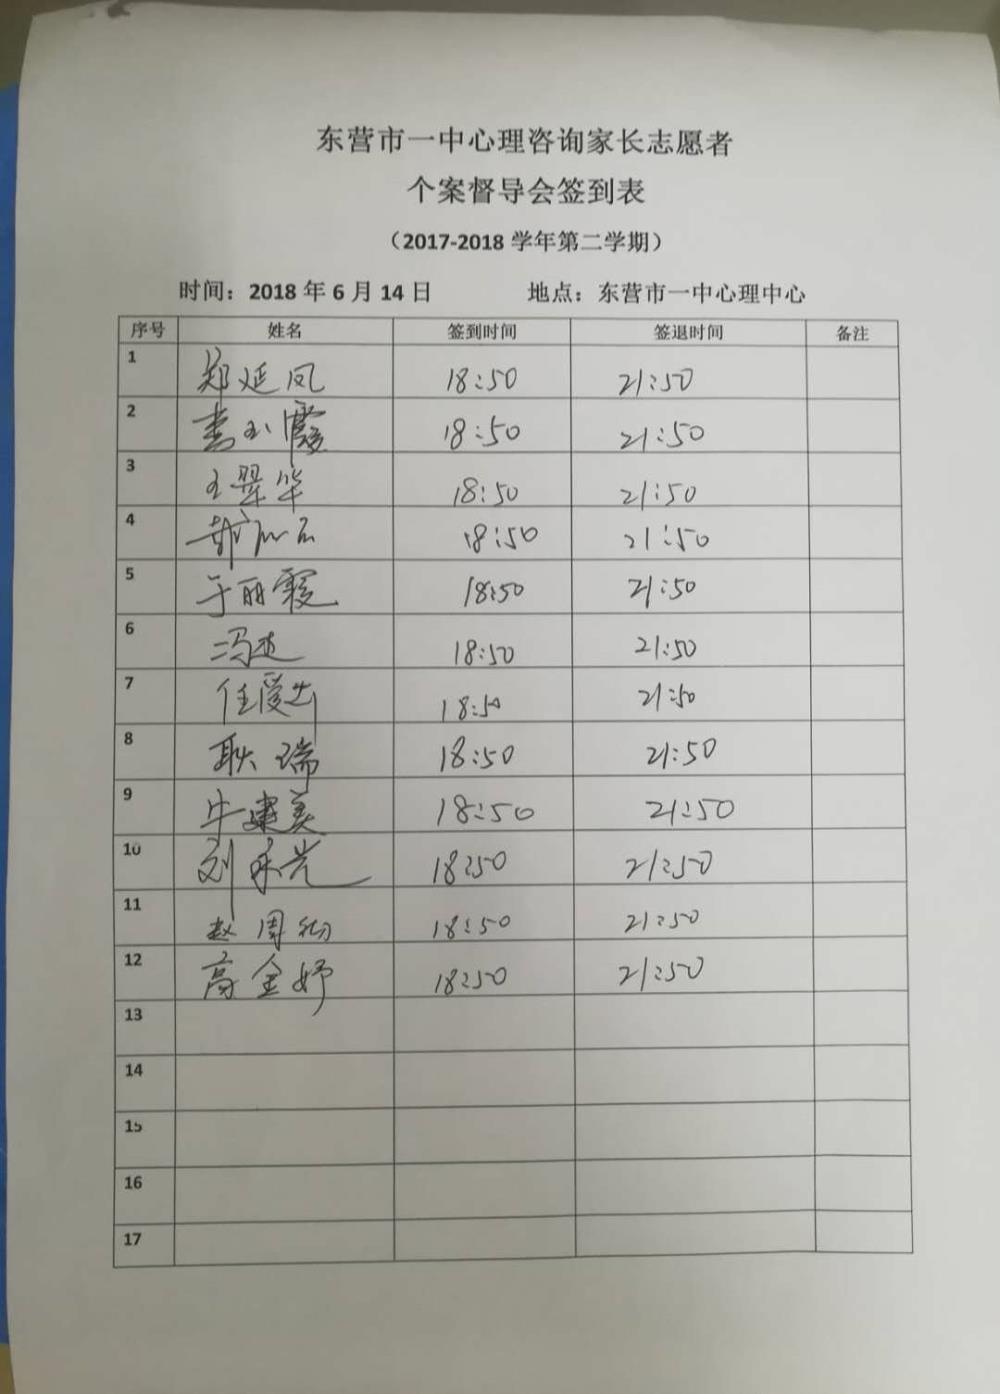 东营市一中心理咨询家长志愿者
个案督导会签到表
（2017-2018 学年第二学期）
时间：2018 年 6 月 14 日 地点：东营市一中心理中心
序号 姓名 签到时间 签退时间 备注
1 郑延凤 18:50 21:50
2 18:50 21:50
3 王翠华 18:50 21:50
4 18:50 21:50
5 于丽霞 18:50 21:50
6 18:50 21:50
7 18:50 21:50
8 耿瑞 18:50 21:50
9 牛建美 18:50 21:50
10 18:50 21:50
11 18:50 21:50
12 高金妤 18:50 21:50
13
14
15
16
17